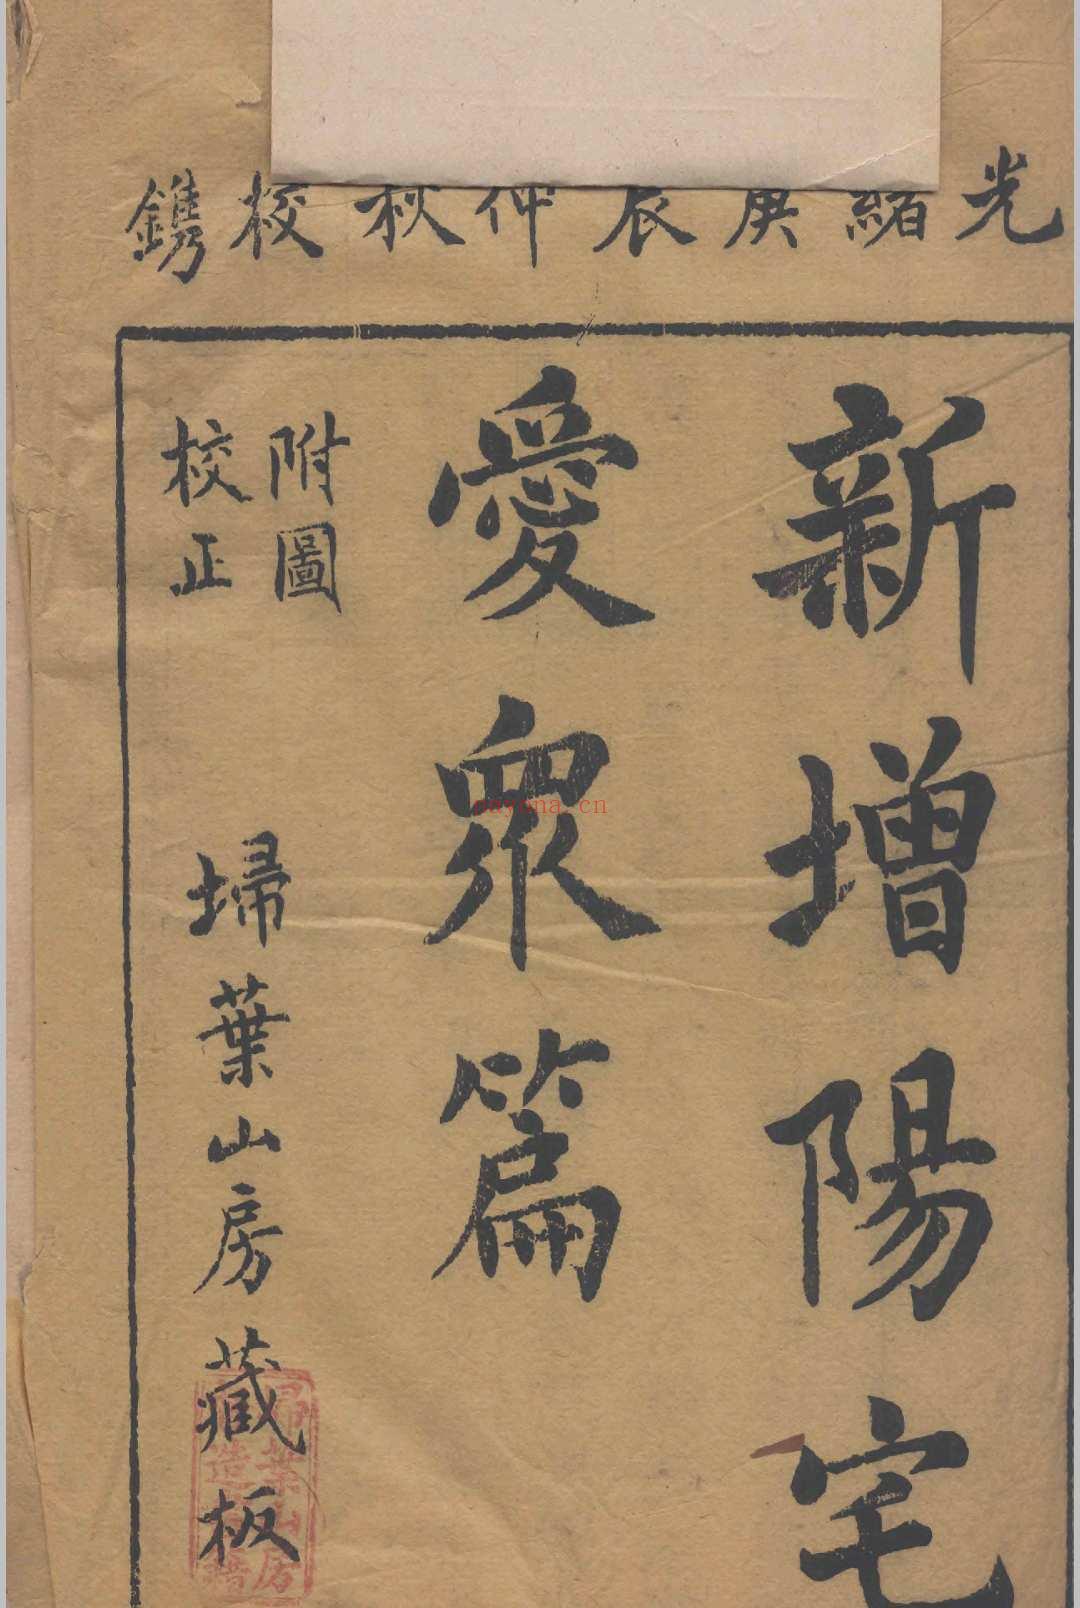 光緒庚辰仲秋校鐫
新增陽宅
愛衆篇
附圖
校正
埽葉山房藏板